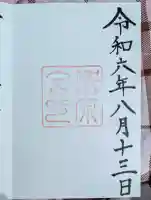 令和六年八月十三日